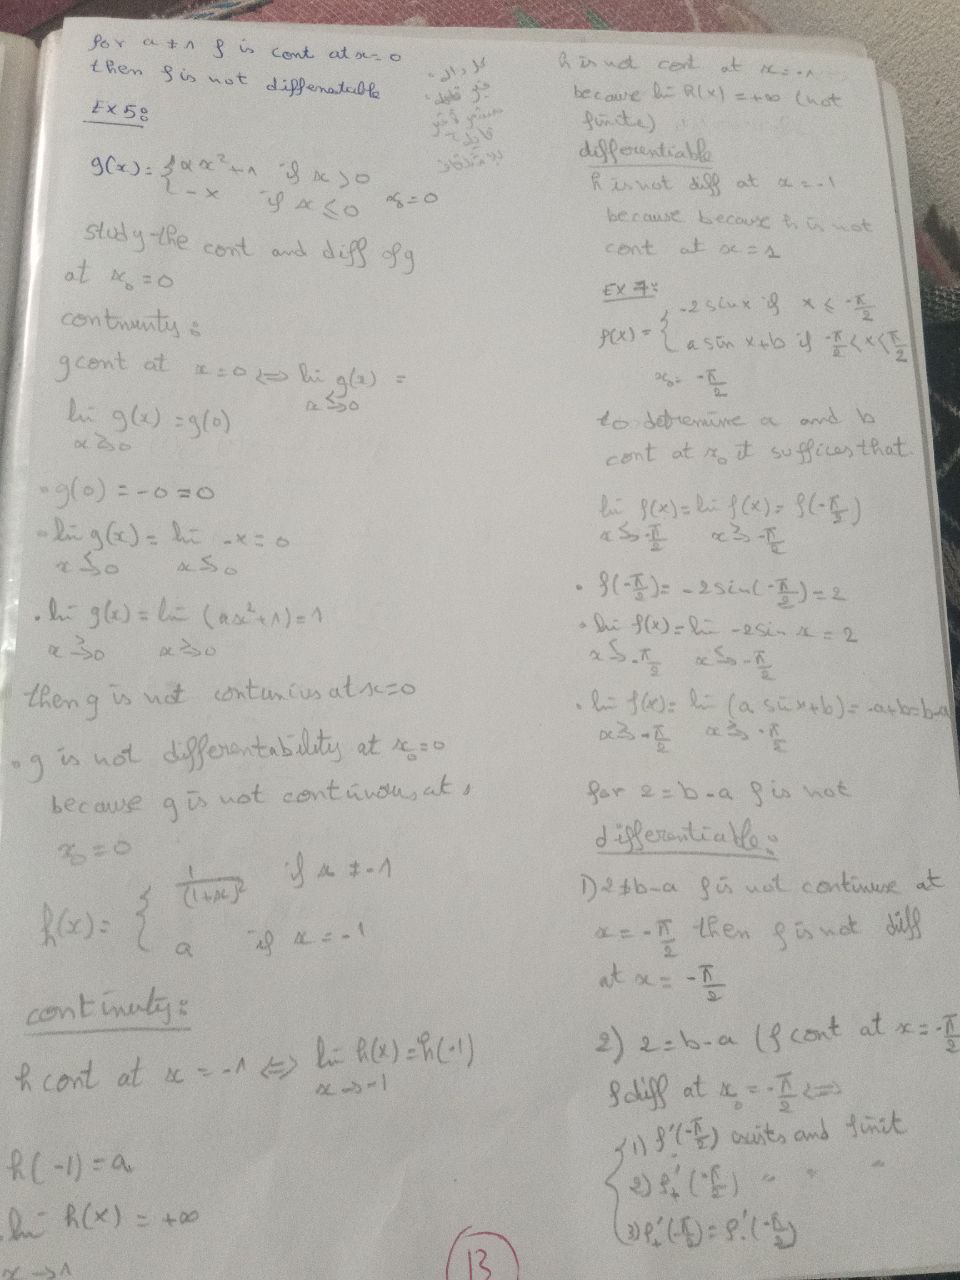 for a ≠ 1 f is cont at x=0
then f is not differentable
EX 5:
g(x) = { ax²+1 if x>0
{ -x if x≤0 x₀=0
study the cont and diff of g
at x₀=0
continuity:
g cont at x=0 ⟺ lim g(x) =
x→<0
lim g(x) = g(0)
x→>0
• g(0) = -0 = 0
• lim g(x) = lim -x = 0
x→<0 x→<0
• lim g(x) = lim (ax²+1) = 1
x→>0 x→>0
then g is not contunius at x=0
• g is not differentability at x₀=0
because g is not continuous at
x₀=0
h(x) = { 1/(1+x)² if x ≠ -1
{ a if x = -1
continuty:
h cont at x = -1 ⟺ lim h(x) = h(-1)
x→-1
h(-1) = a
lim h(x) = +∞
x→1
h is not cont at x = -1
because lim h(x) = +∞ (not
finite)
differentiable
h is not diff at x = -1
because because h is not
cont at x = 1
EX 7:
f(x) = { -2 sin x if x ≤ -π/2
{ a sin x+b if -π/2 < x < π/2
x₀ = -π/2
to detremine a and b
cont at x₀ it suffices that
lim f(x) = lim f(x) = f(-π/2)
x→<-π/2 x→>-π/2
• f(-π/2) = -2 sin(-π/2) = 2
• lim f(x) = lim -2 sin x = 2
x→<-π/2 x→<-π/2
• lim f(x) = lim (a sin x+b) = -a+b=b-a
x→>-π/2 x→>-π/2
for 2 = b-a f is not
differentiable:
1) 2≠b-a f is not continuse at
x = -π/2 then f is not diff
at x = -π/2
2) 2=b-a (f cont at x = -π/2
f diff at x₀ = -π/2 ⟺
{ 1) f'(-π/2) exists and finit
{ 2) f'₊(-π/2) " " "
{ 3) f'₊(-π/2) = f'₋(-π/2)
13